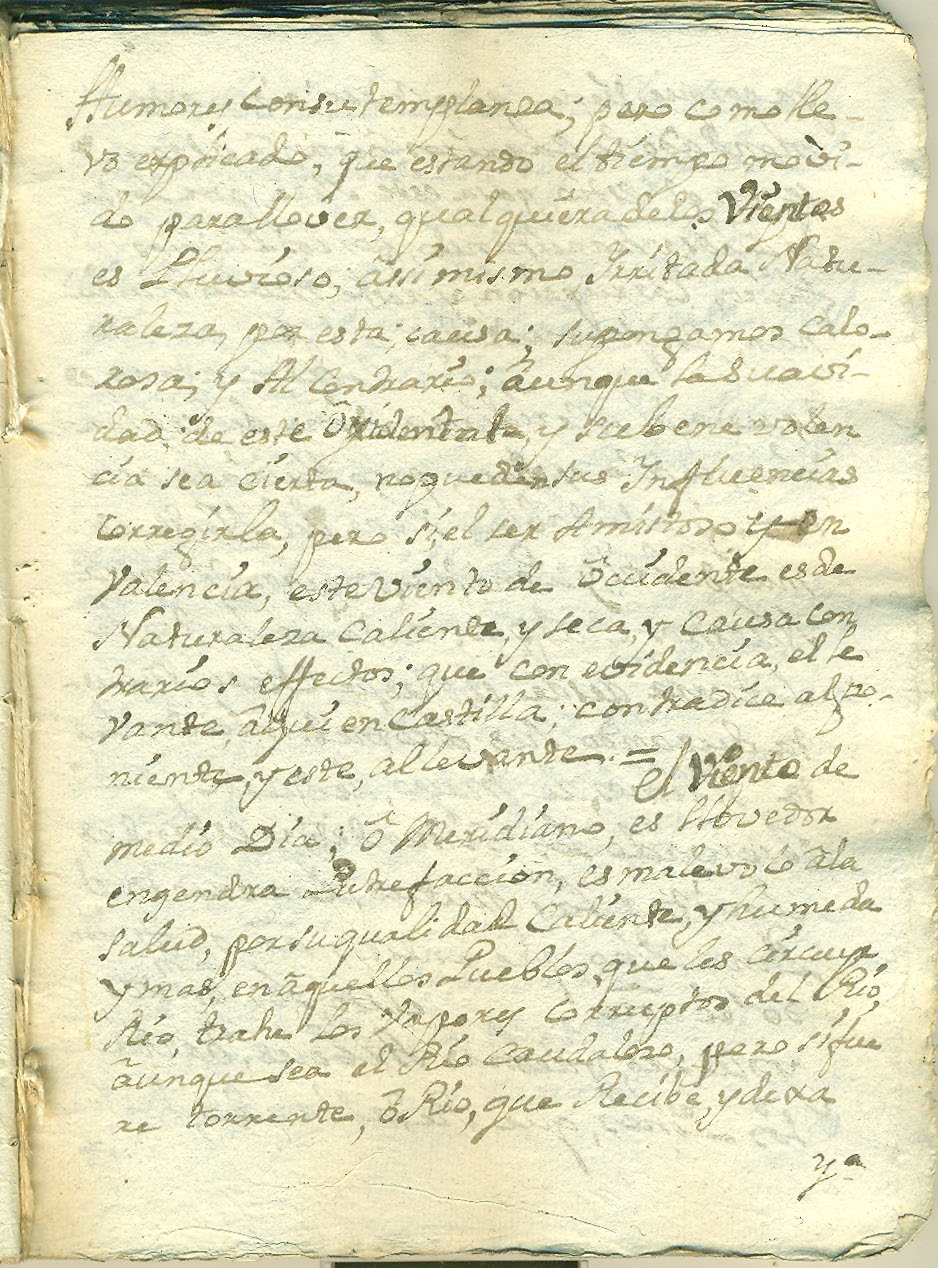 Humores con su templanza; pero como lle-
vo expòicado, que estando el tiempo movi-
do para llover, qualquiera de los Vientos
es Lluvioso, âssi mismo Irritada Natu-
raleza, por esta causa; supongamos Calo-
rosa; y Al Contrario; âunque la Suavi-
dad de este y su bene volen
cia sea cierta, no pueden sus Influencias
Corregirla, pero si, el ser Amistoso y en
Valencia, este Viento de Ôccidente es de
Naturaleza Caliente, y seca, y Causa con
trarios effectos; que con evidencia, el le
vante, âqui en Castilla; contradice al po-
niente, y este, al levante. = el Viento de
medio Dia; ô Meridiano, es llovedor
engendra Putrefaccion, es malevolo âla
salud, por su qualidad Caliente, y humeda
y mas, en âquellos Pueblos, que les circuye
Rio, trahe los Vapores Corruptos del Rio,
âunque sea el Rio Caudaloso, pero si fue
re torrente, ô Rio, que Recibe, y dexa
ya